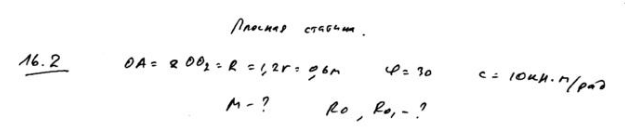 Плоская статика.
16.2 OA = 2 OO₂ = R = 1,2r = 0,6м φ = 30 c = 10кн.м/рад
M - ? Ro, Ro₁ - ?